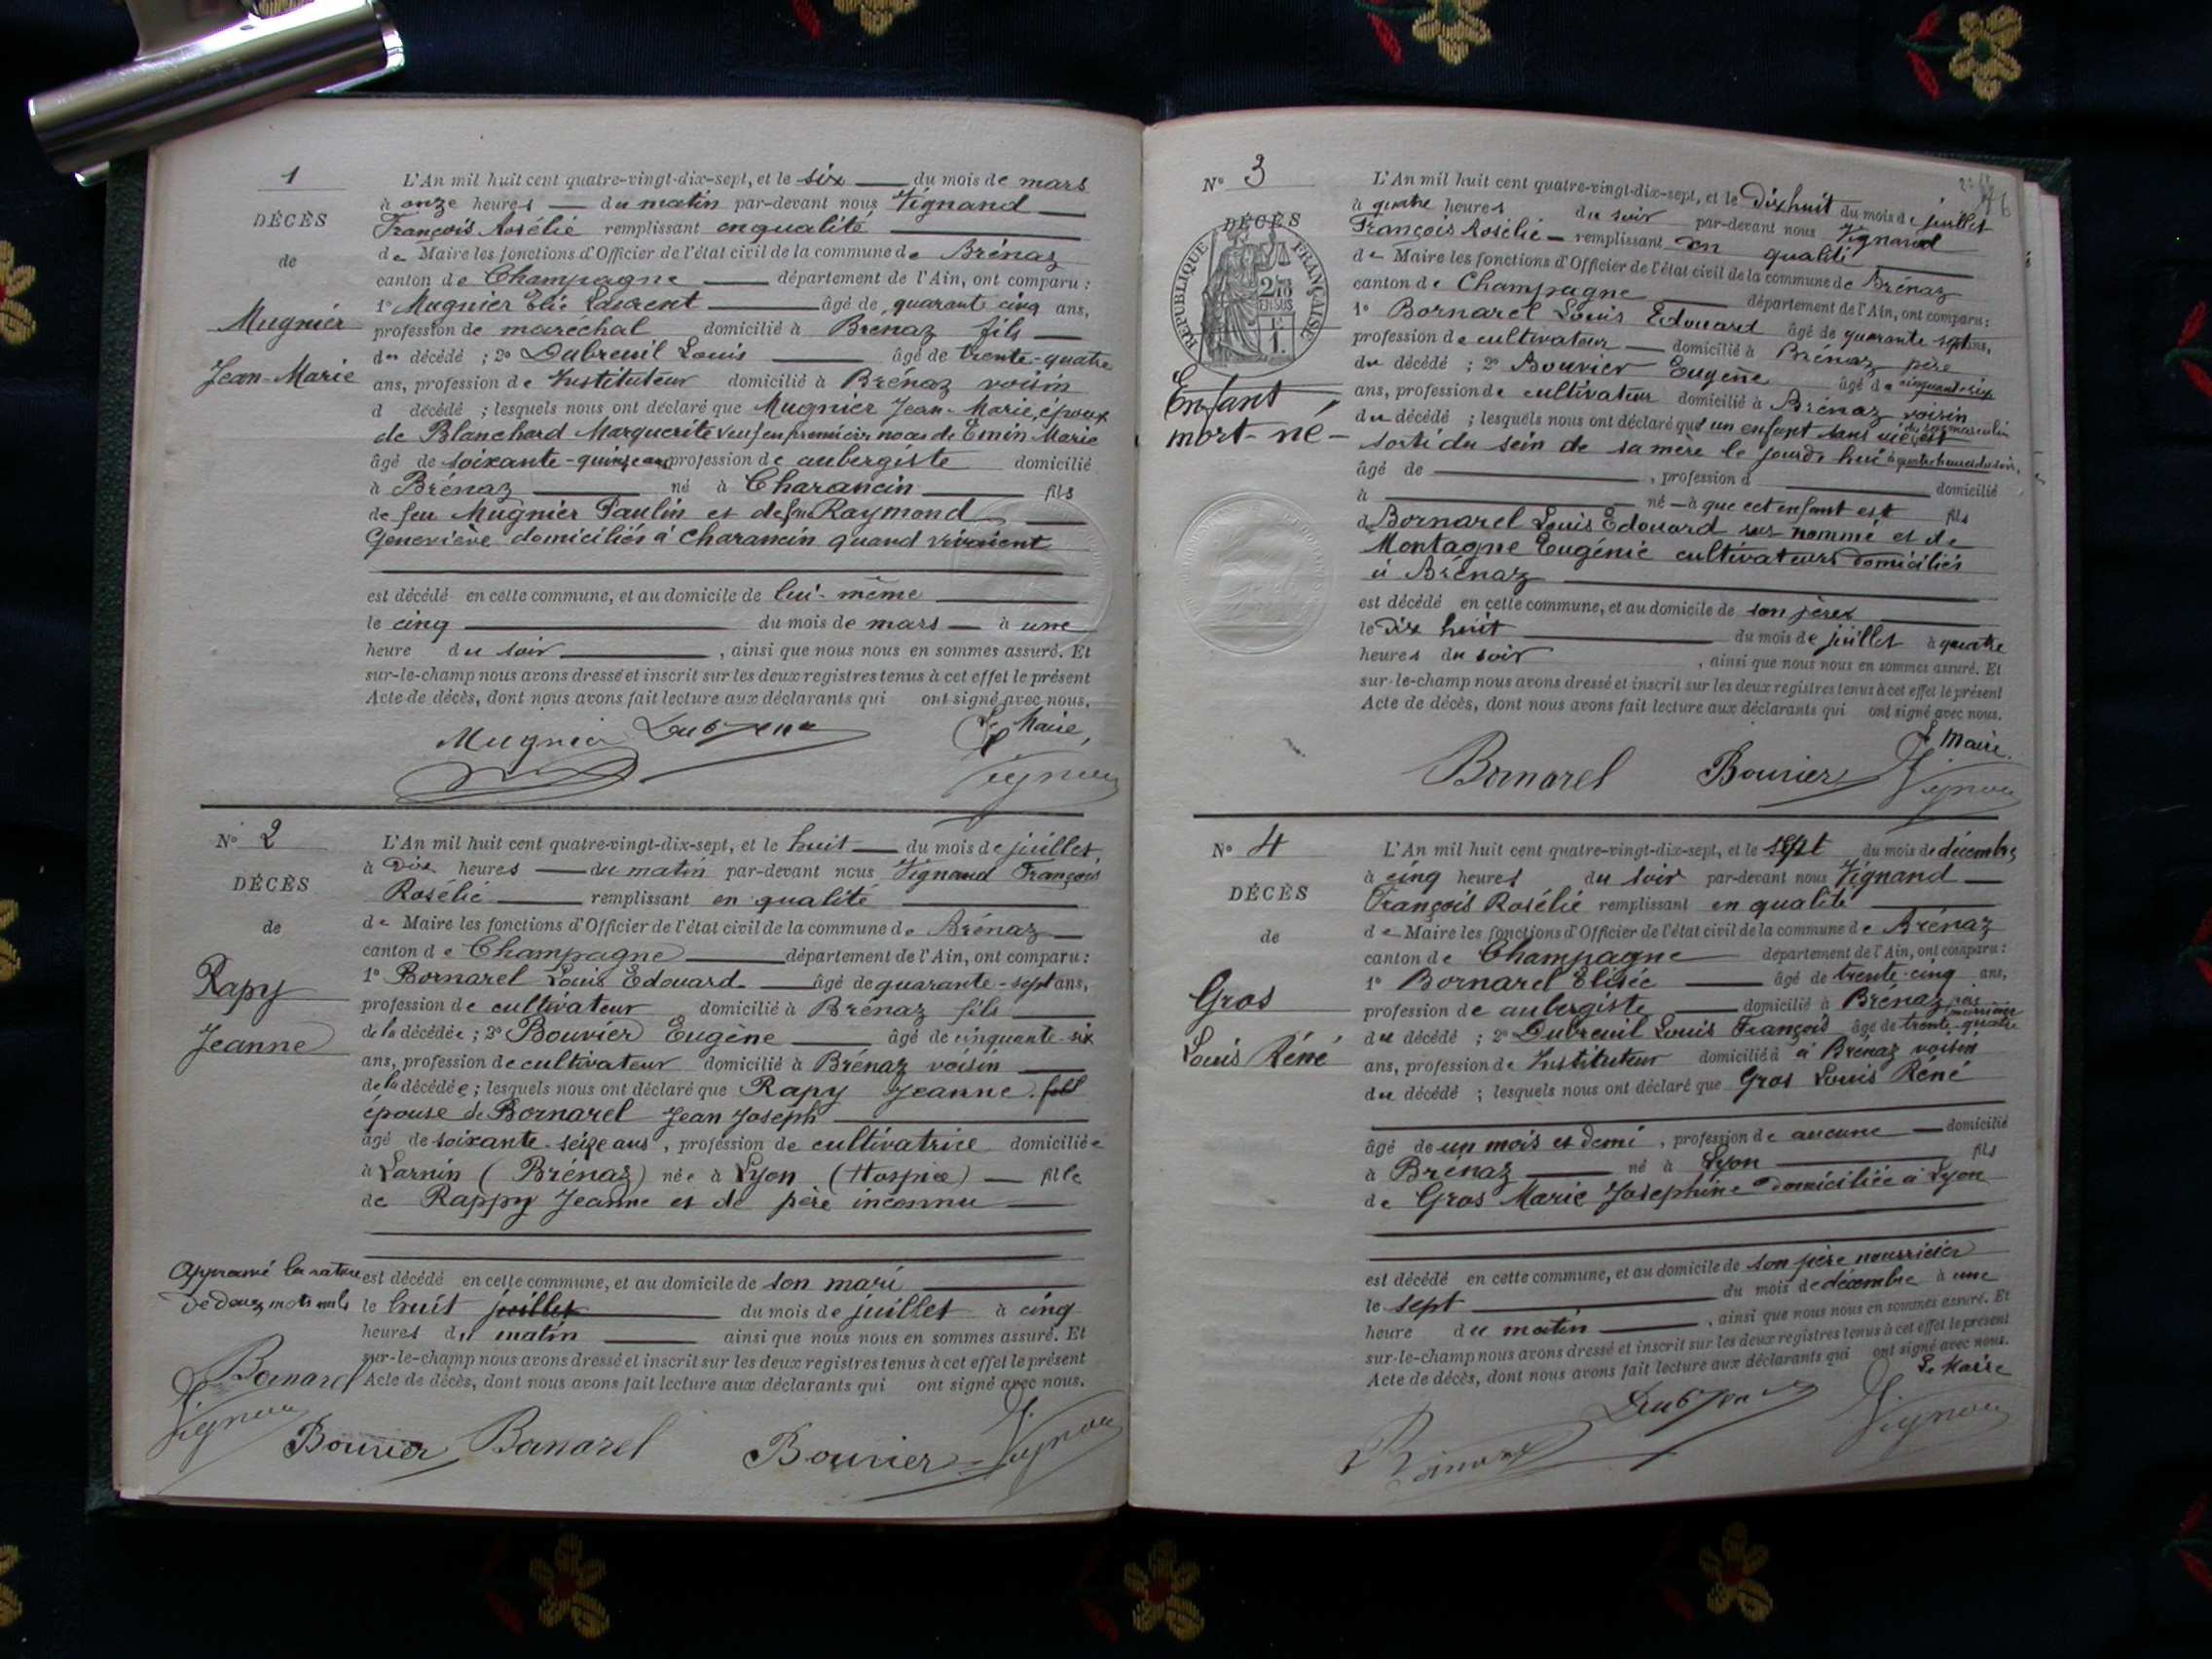 1
DÉCÈS
de
Mugnier
Jean-Marie
L'An mil huit cent quatre-vingt-dix-sept, et le six du mois de mars
à onze heures du matin par-devant nous Vignand
François Rosélie remplissant en qualité
de Maire les fonctions d'Officier de l'état civil de la commune de Brénaz
canton de Champagne département de l'Ain, ont comparu :
1° Mugnier Elie Laurent âgé de quarante cinq ans,
profession de maréchal domicilié à Brénaz fils
du décédé ; 2° Dubreuil Louis âgé de trente-quatre
ans, profession de Instituteur domicilié à Brénaz voisin
d décédé ; lesquels nous ont déclaré que Mugnier Jean-Marie, époux
de Blanchard Marguerite veuf en premières noces de Emin Marie
âgé de soixante-quinze ans profession de aubergiste domicilié
à Brénaz né à Charancin fils
de feu Mugnier Paulin et de feue Raymond
Geneviève domiciliés à Charancin quand vivaient
est décédé en cette commune, et au domicile de lui-même
le cinq du mois de mars à une
heure du soir , ainsi que nous nous en sommes assuré. Et
sur-le-champ nous avons dressé et inscrit sur les deux registres tenus à cet effet le présent
Acte de décès, dont nous avons fait lecture aux déclarants qui ont signé avec nous.
Le Maire,
Mugnier
N° 2
DÉCÈS
de
Rapy
Jeanne
L'An mil huit cent quatre-vingt-dix-sept, et le huit du mois de juillet
à Dix heures du matin par-devant nous Vignand François
Rosélie remplissant en qualité
de Maire les fonctions d'Officier de l'état civil de la commune de Brénaz
canton de Champagne département de l'Ain, ont comparu :
1° Bornarel Louis Edouard âgé de quarante-sept ans,
profession de cultivateur domicilié à Brénaz fils
de la décédée ; 2° Bouvier Eugène âgé de cinquante-six
ans, profession de cultivateur domicilié à Brénaz voisin
de la décédée ; lesquels nous ont déclaré que Rapy Jeanne
épouse de Bornarel Jean Joseph
âgé de soixante-seize ans, profession de cultivatrice domiciliée
à Larnin (Brénaz) née à Lyon (Hospice) fille
de Rappy Jeanne et de père inconnu
est décédé en cette commune, et au domicile de son mari
le huit juillet du mois de juillet à cinq
heures du matin ainsi que nous nous en sommes assuré. Et
sur-le-champ nous avons dressé et inscrit sur les deux registres tenus à cet effet le présent
Acte de décès, dont nous avons fait lecture aux déclarants qui ont signé avec nous.
Approuvé la rature
de deux mots nuls
Bornarel
Bouvier Bornarel Bouvier
N° 3
DÉCÈS
RÉPUBLIQUE FRANÇAISE
Enfant
mort-né
L'An mil huit cent quatre-vingt-dix-sept, et le Dix huit du mois de juillet
à quatre heures du soir par-devant nous Vignand
François Rosélie remplissant en qualité
de Maire les fonctions d'Officier de l'état civil de la commune de Brénaz
canton de Champagne département de l'Ain, ont comparu :
1° Bornarel Louis Edouard âgé de quarante-sept ans,
profession de cultivateur domicilié à Brénaz père
du décédé ; 2° Bouvier Eugène âgé de cinquante-six
ans, profession de cultivateur domicilié à Brénaz voisin
du décédé ; lesquels nous ont déclaré qu'un enfant sans vie du sexe masculin est
sorti du sein de sa mère le jourd'hui à quatre heures du soir,
âgé de , profession d domicilié
à né à que cet enfant est fils
de Bornarel Louis Edouard sus nommé et de
Montagne Eugénie cultivateurs domiciliés
à Brénaz
est décédé en cette commune, et au domicile de son père
le Dix huit du mois de juillet à quatre
heures du soir , ainsi que nous nous en sommes assuré. Et
sur-le-champ nous avons dressé et inscrit sur les deux registres tenus à cet effet le présent
Acte de décès, dont nous avons fait lecture aux déclarants qui ont signé avec nous.
Maire.
Bornarel Bouvier
N° 4
DÉCÈS
de
Gros
Louis Réné
L'An mil huit cent quatre-vingt-dix-sept, et le sept du mois de décembre
à cinq heures du soir par-devant nous Vignand
François Rosélie remplissant en qualité
de Maire les fonctions d'Officier de l'état civil de la commune de Brénaz
canton de Champagne département de l'Ain, ont comparu :
1° Bornarel Elisée âgé de trente-cinq ans,
profession de aubergiste domicilié à Brénaz père nourricier
du décédé ; 2° Dubreuil Louis François âgé de trente-quatre
ans, profession de Instituteur domicilié à à Brénaz voisin
du décédé ; lesquels nous ont déclaré que Gros Louis Réné
âgé de un mois et demi , profession de aucune domicilié
à Brénaz né à Lyon fils
de Gros Marie Joséphine domiciliée à Lyon
est décédé en cette commune, et au domicile de son père nourricier
le sept du mois de décembre à une
heure du matin , ainsi que nous nous en sommes assuré. Et
sur-le-champ nous avons dressé et inscrit sur les deux registres tenus à cet effet le présent
Acte de décès, dont nous avons fait lecture aux déclarants qui ont signé avec nous.
Le Maire